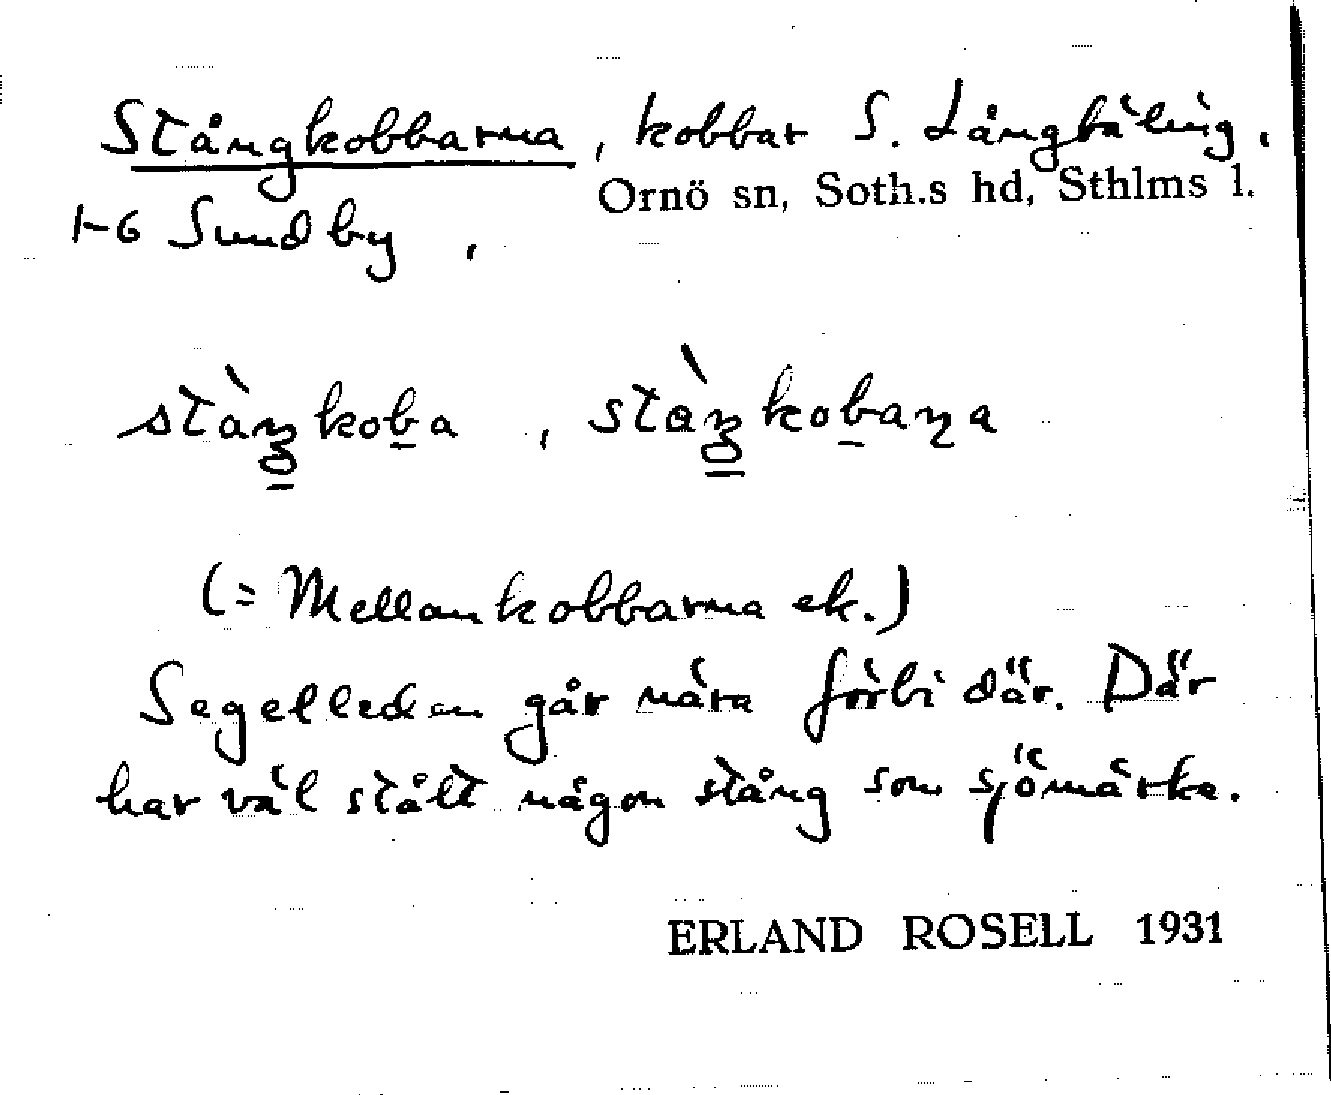 Stångkobbarna, kobbar S. Långbäling.
Ornö sn, Soth.s hd, Sthlms l.
1-6 Sundby,
(= Mellankobbarna ek.)
Segelleden går nära förbi där. Där
har väl stått någon stång som sjömärke.
ERLAND ROSELL 1931